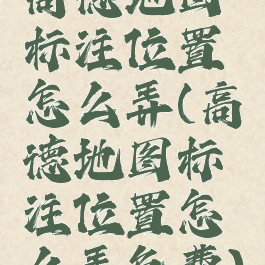 高德地图
标注位置
怎么弄(高
德地图标
注位置怎
么弄免费)